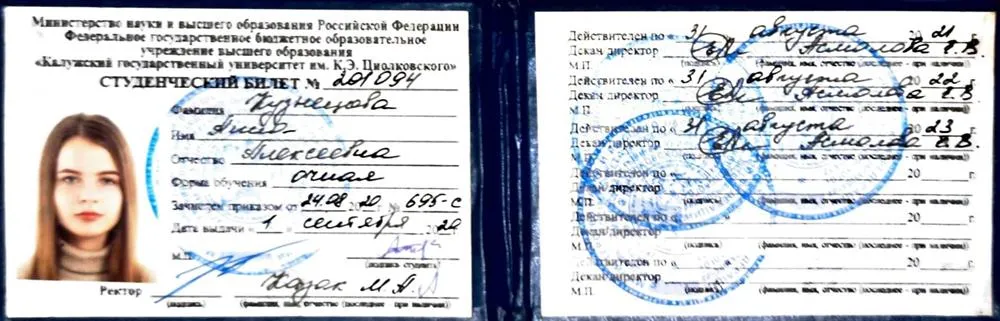 Министерство науки и высшего образования Российской Федерации
Федеральное государственное бюджетное образовательное
учреждение высшего образования
«Калужский государственный университет им. К.Э. Циолковского»
СТУДЕНЧЕСКИЙ БИЛЕТ № 201094
Фамилия Кузнецова
Имя Анна
Отчество Алексеевна
Форма обучения очная
Зачислен приказом от 24.08.2020 № 695-с
Дата выдачи « 1 » сентября 2020
М.П. (подпись студента)
Ректор Казак М.А.
(подпись) (фамилия, имя, отчество (последнее - при наличии))
Действителен по « 31 » августа 20 21 г.
Декан/директор Асмолова Е.В.
М.П. (подпись) (фамилия, имя, отчество (последнее - при наличии))
Действителен по « 31 » августа 20 22 г.
Декан/директор Асмолова Е.В.
М.П. (подпись) (фамилия, имя, отчество (последнее - при наличии))
Действителен по « 31 » августа 20 23 г.
Декан/директор Асмолова Е.В.
М.П. (подпись) (фамилия, имя, отчество (последнее - при наличии))
Действителен по « 20 г.
Декан/директор
М.П. (подпись) (фамилия, имя, отчество (последнее - при наличии))
Действителен по « 20 г.
Декан/директор
М.П. (подпись) (фамилия, имя, отчество (последнее - при наличии))
Действителен по « 20 г.
Декан/директор
М.П. (подпись) (фамилия, имя, отчество (последнее - при наличии))